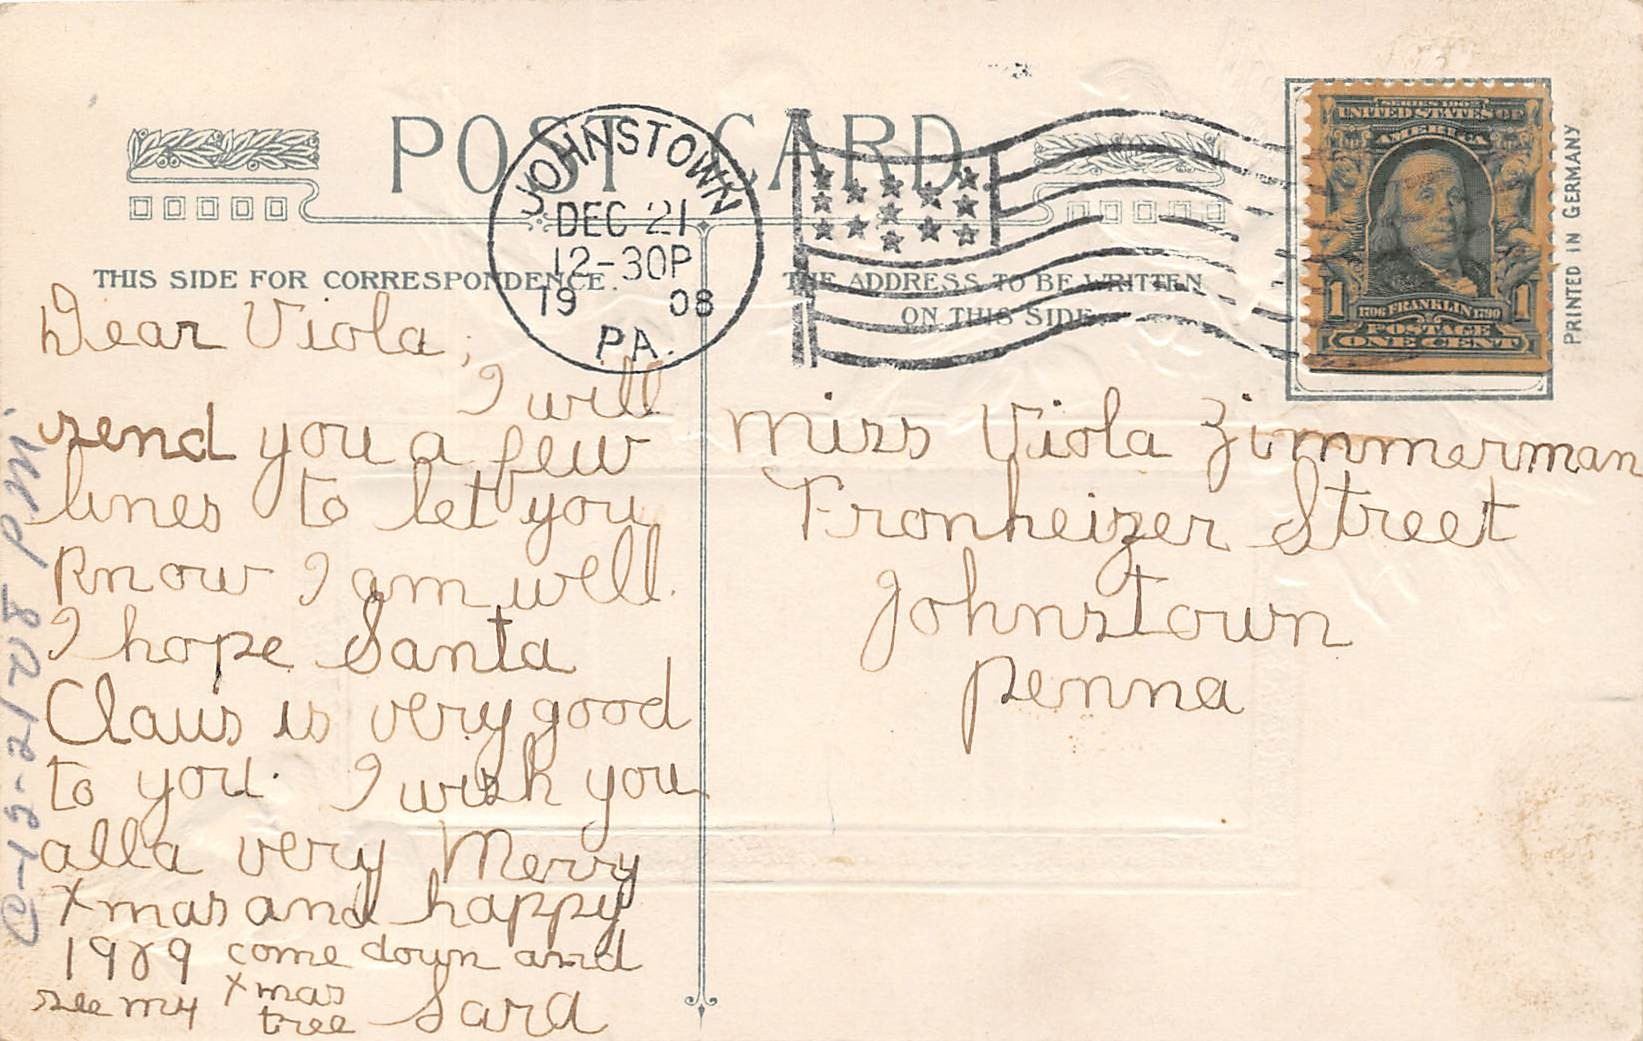 POST CARD
JOHNSTOWN
DEC 21
12-30P
19 08
PA.
THIS SIDE FOR CORRESPONDENCE.
THE ADDRESS TO BE WRITTEN
ON THIS SIDE.
SERIES 1902
UNITED STATES OF
AMERICA
1 1
1706 FRANKLIN 1790
POSTAGE
ONE CENT
PRINTED IN GERMANY
Dear Viola,
I will
send you a few
lines to let you
know I am well.
I hope Santa
Claus is very good
to you. I wish you
all a very Merry
Xmas and happy
1909 come down and
see my Xmas
tree Sara
Miss Viola Zimmerman
Fronheizer Street
Johnstown
Penna
C-12-21/08 P.M.